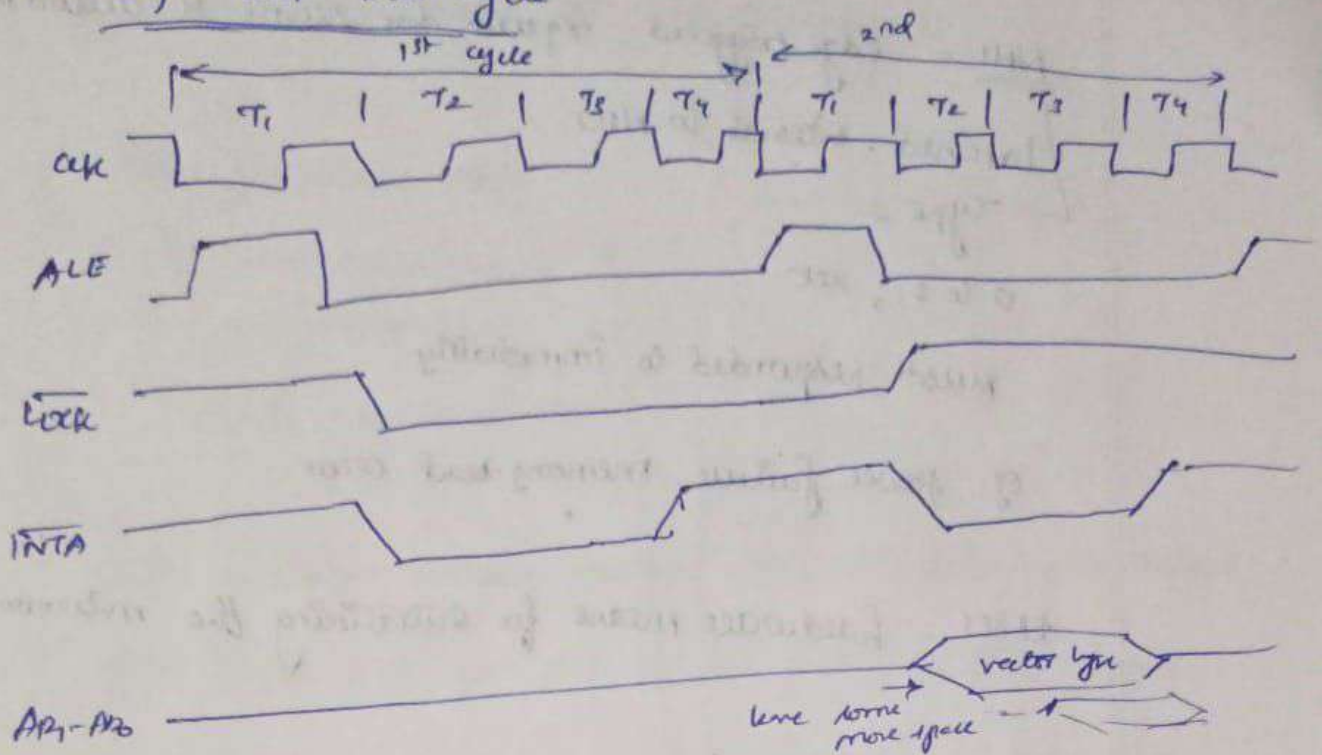 1st cycle
2nd
T1 T2 T3 T4 T1 T2 T3 T4
CLK
ALE
LOCK
INTA
vector byte
AD7-AD0
leave some
more space